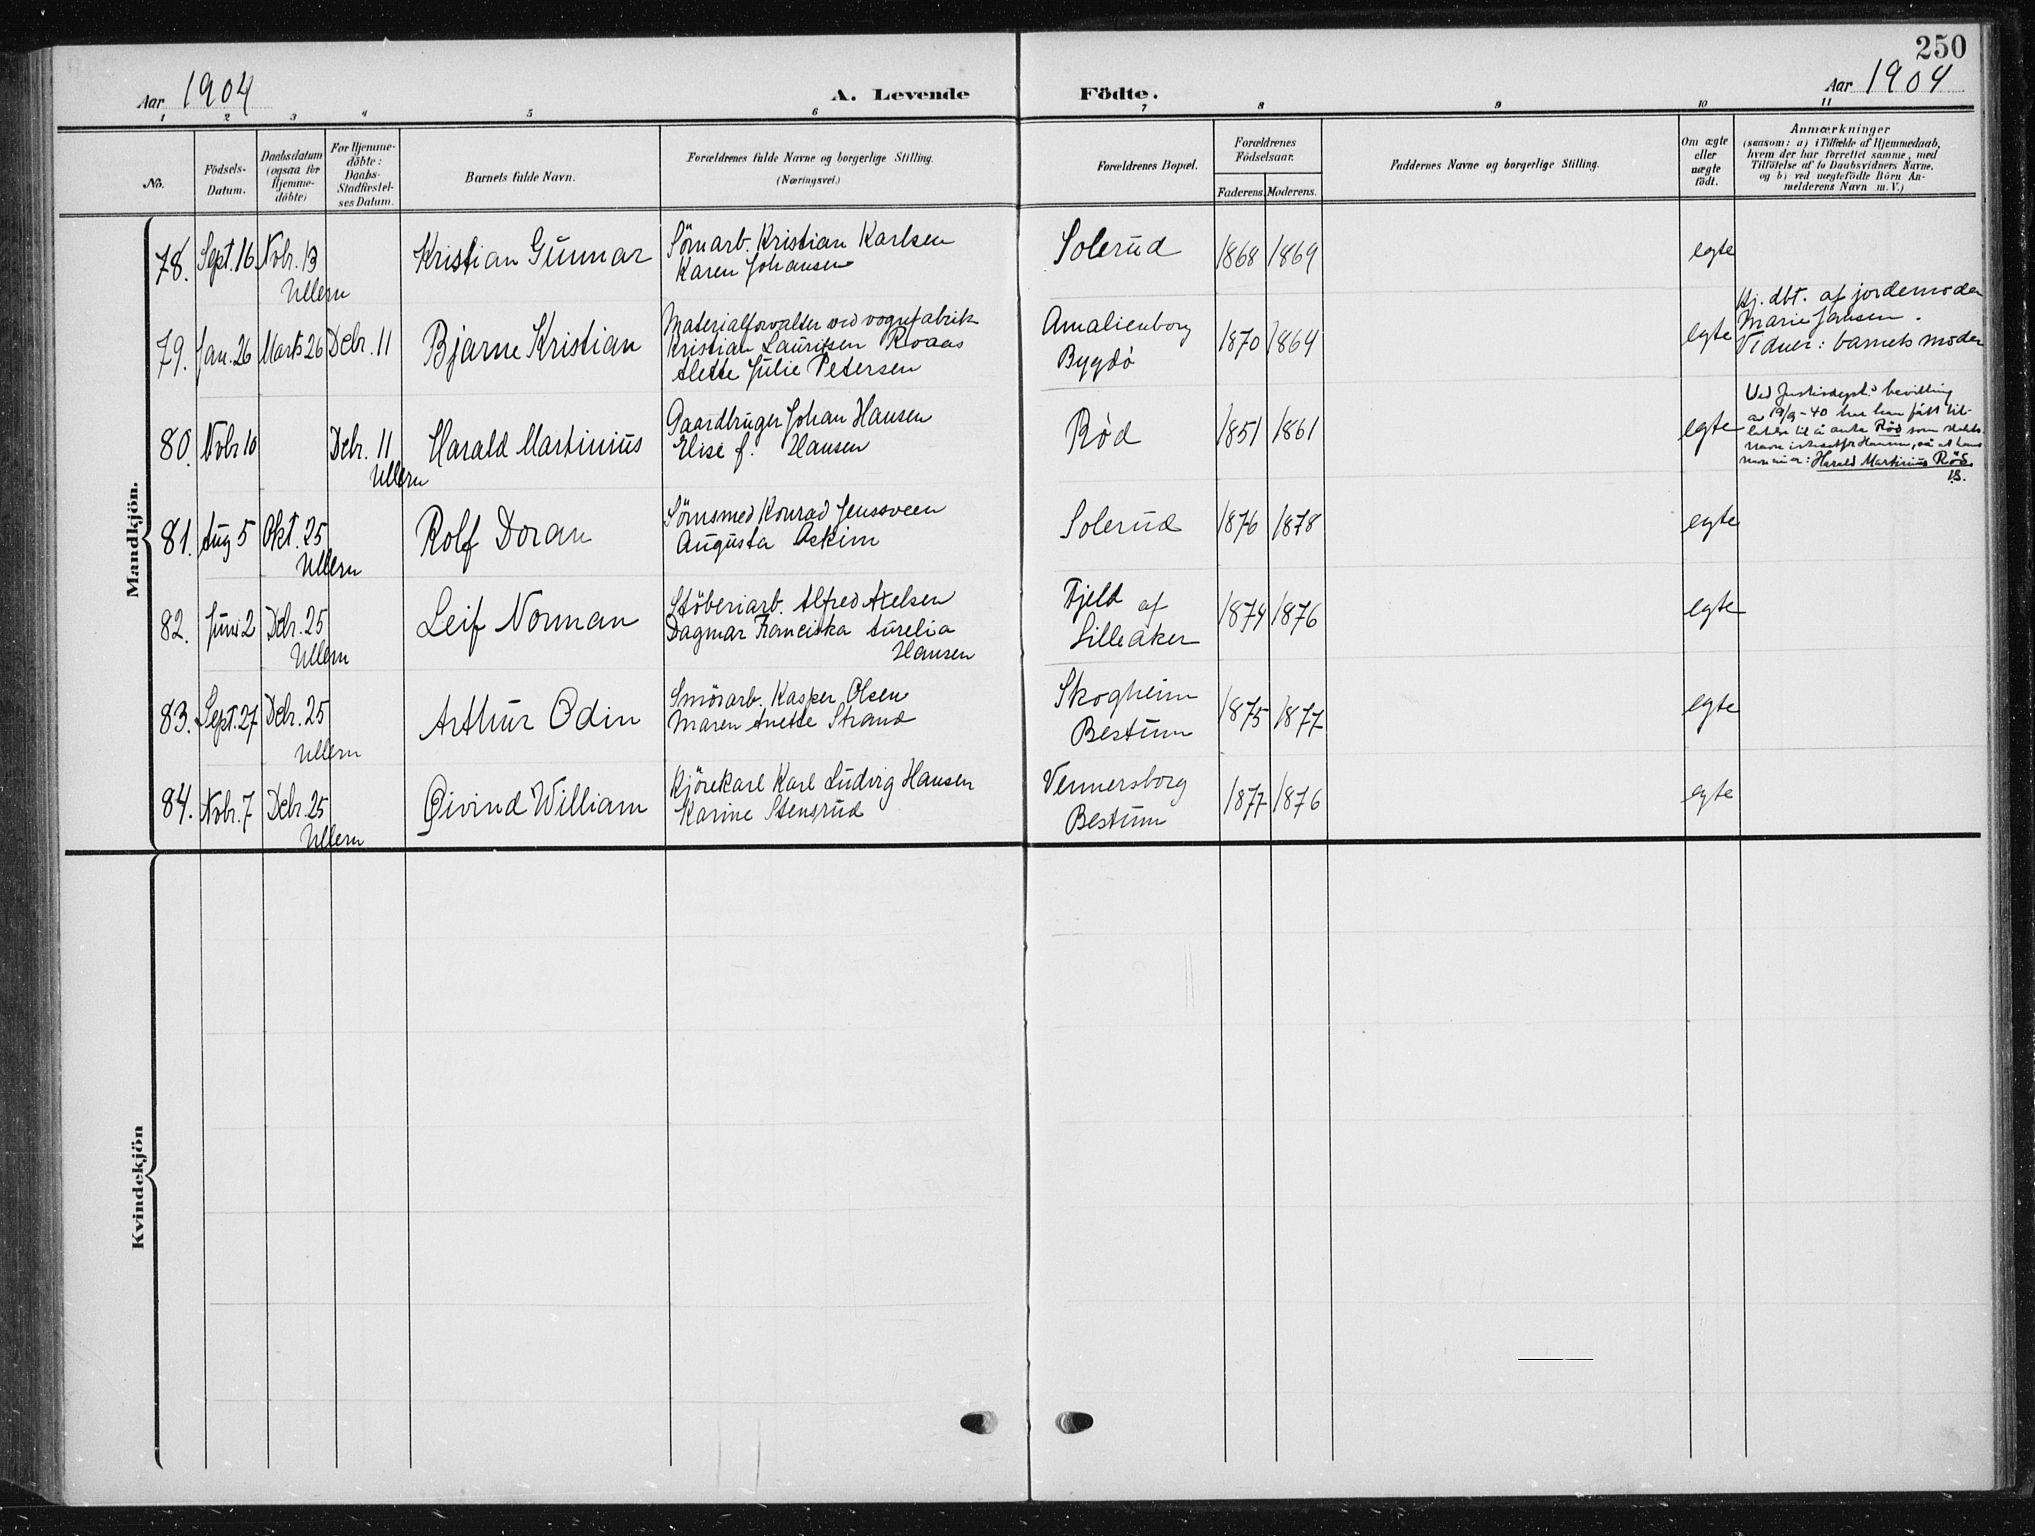 250
Aar 1904
A. Levende Födte.
Aar 1904
1 2 3 4 5 6 7 8 9 10 11
No.
Födsels-
Datum.
Daabsdatum
(ogsaa for
Hjemme-
döbte)
For Hjemme-
döbte:
Daabs-
Stadfæstel-
ses Datum.
Barnets fulde Navn.
Forældrenes fulde Navne og borgerlige Stilling.
(Næringsvei.)
Forældrenes Bopæl.
Forældrenes
Födselsaar.
Faderens. Moderens.
Faddernes Navne og borgerlige Stilling.
Om ægte
eller
uægte
födt.
Anmærkninger
(saasom: a) i Tilfælde af Hjemmedaab,
hvem der har forrettet samme, med
Tilföielse af to Daabsvidners Navne.
og b) ved uægtefödte Börn An-
melderens Navn m. V.)
Mandkjön.
78. Sept. 16 Nobr. 13
Ullern
Kristian Gunnar
Sömarb. Kristian Karlsen
Karen Johansen
Solerud
1868 1869
egte
79. Jan. 26 Marts 26 Debr. 11
Bjarne Kristian
Materialforvalter ved vognfabrik
Kristian Lauritsen Roaas
Alette Julie Petersen
Amalienborg
Bygdö
1870 1864
egte
Hj. dbt. af jordemoder
Marie Jansen.
Vidner: barnets moder
80. Nobr 10 Debr. 11
Ullern
Harald Martinius
Gaardbruger Johan Hansen
Elise f. Hansen
Röd
1851 1861
egte
Ved Justisdept.s bevilling
av 19/9-40 har han fått til-
latelse til å anta Röd som slekts-
navn istedetfor Hansen, så at hans
navn nu er: Harald Martinius Röd.
81. Aug 5 Okt. 25
Ullern
Rolf Doran
Sömsmed Konrad Jenssveen
Augusta Askim
Solerud
1876 1878
egte
82. Juni 2 Debr. 25
Ullern
Leif Norman
Stöberiarb. Alfred Axelsen
Dagmar Franciska Aurelia
Hansen
Fjeld af
Lilleaker
1874 1876
egte
83. Sept. 27 Debr. 25
Ullern
Arthur Odin
Smörarb. Kasper Olsen
Maren Anette Strand
Skogheim
Bestum
1875 1877
egte
84. Nobr. 7 Debr. 25
Ullern
Öivind William
Kjörekarl Karl Ludvig Hansen
Karine Stensrud
Vennersborg
Bestum
1877 1876
egte
Kvindekjön